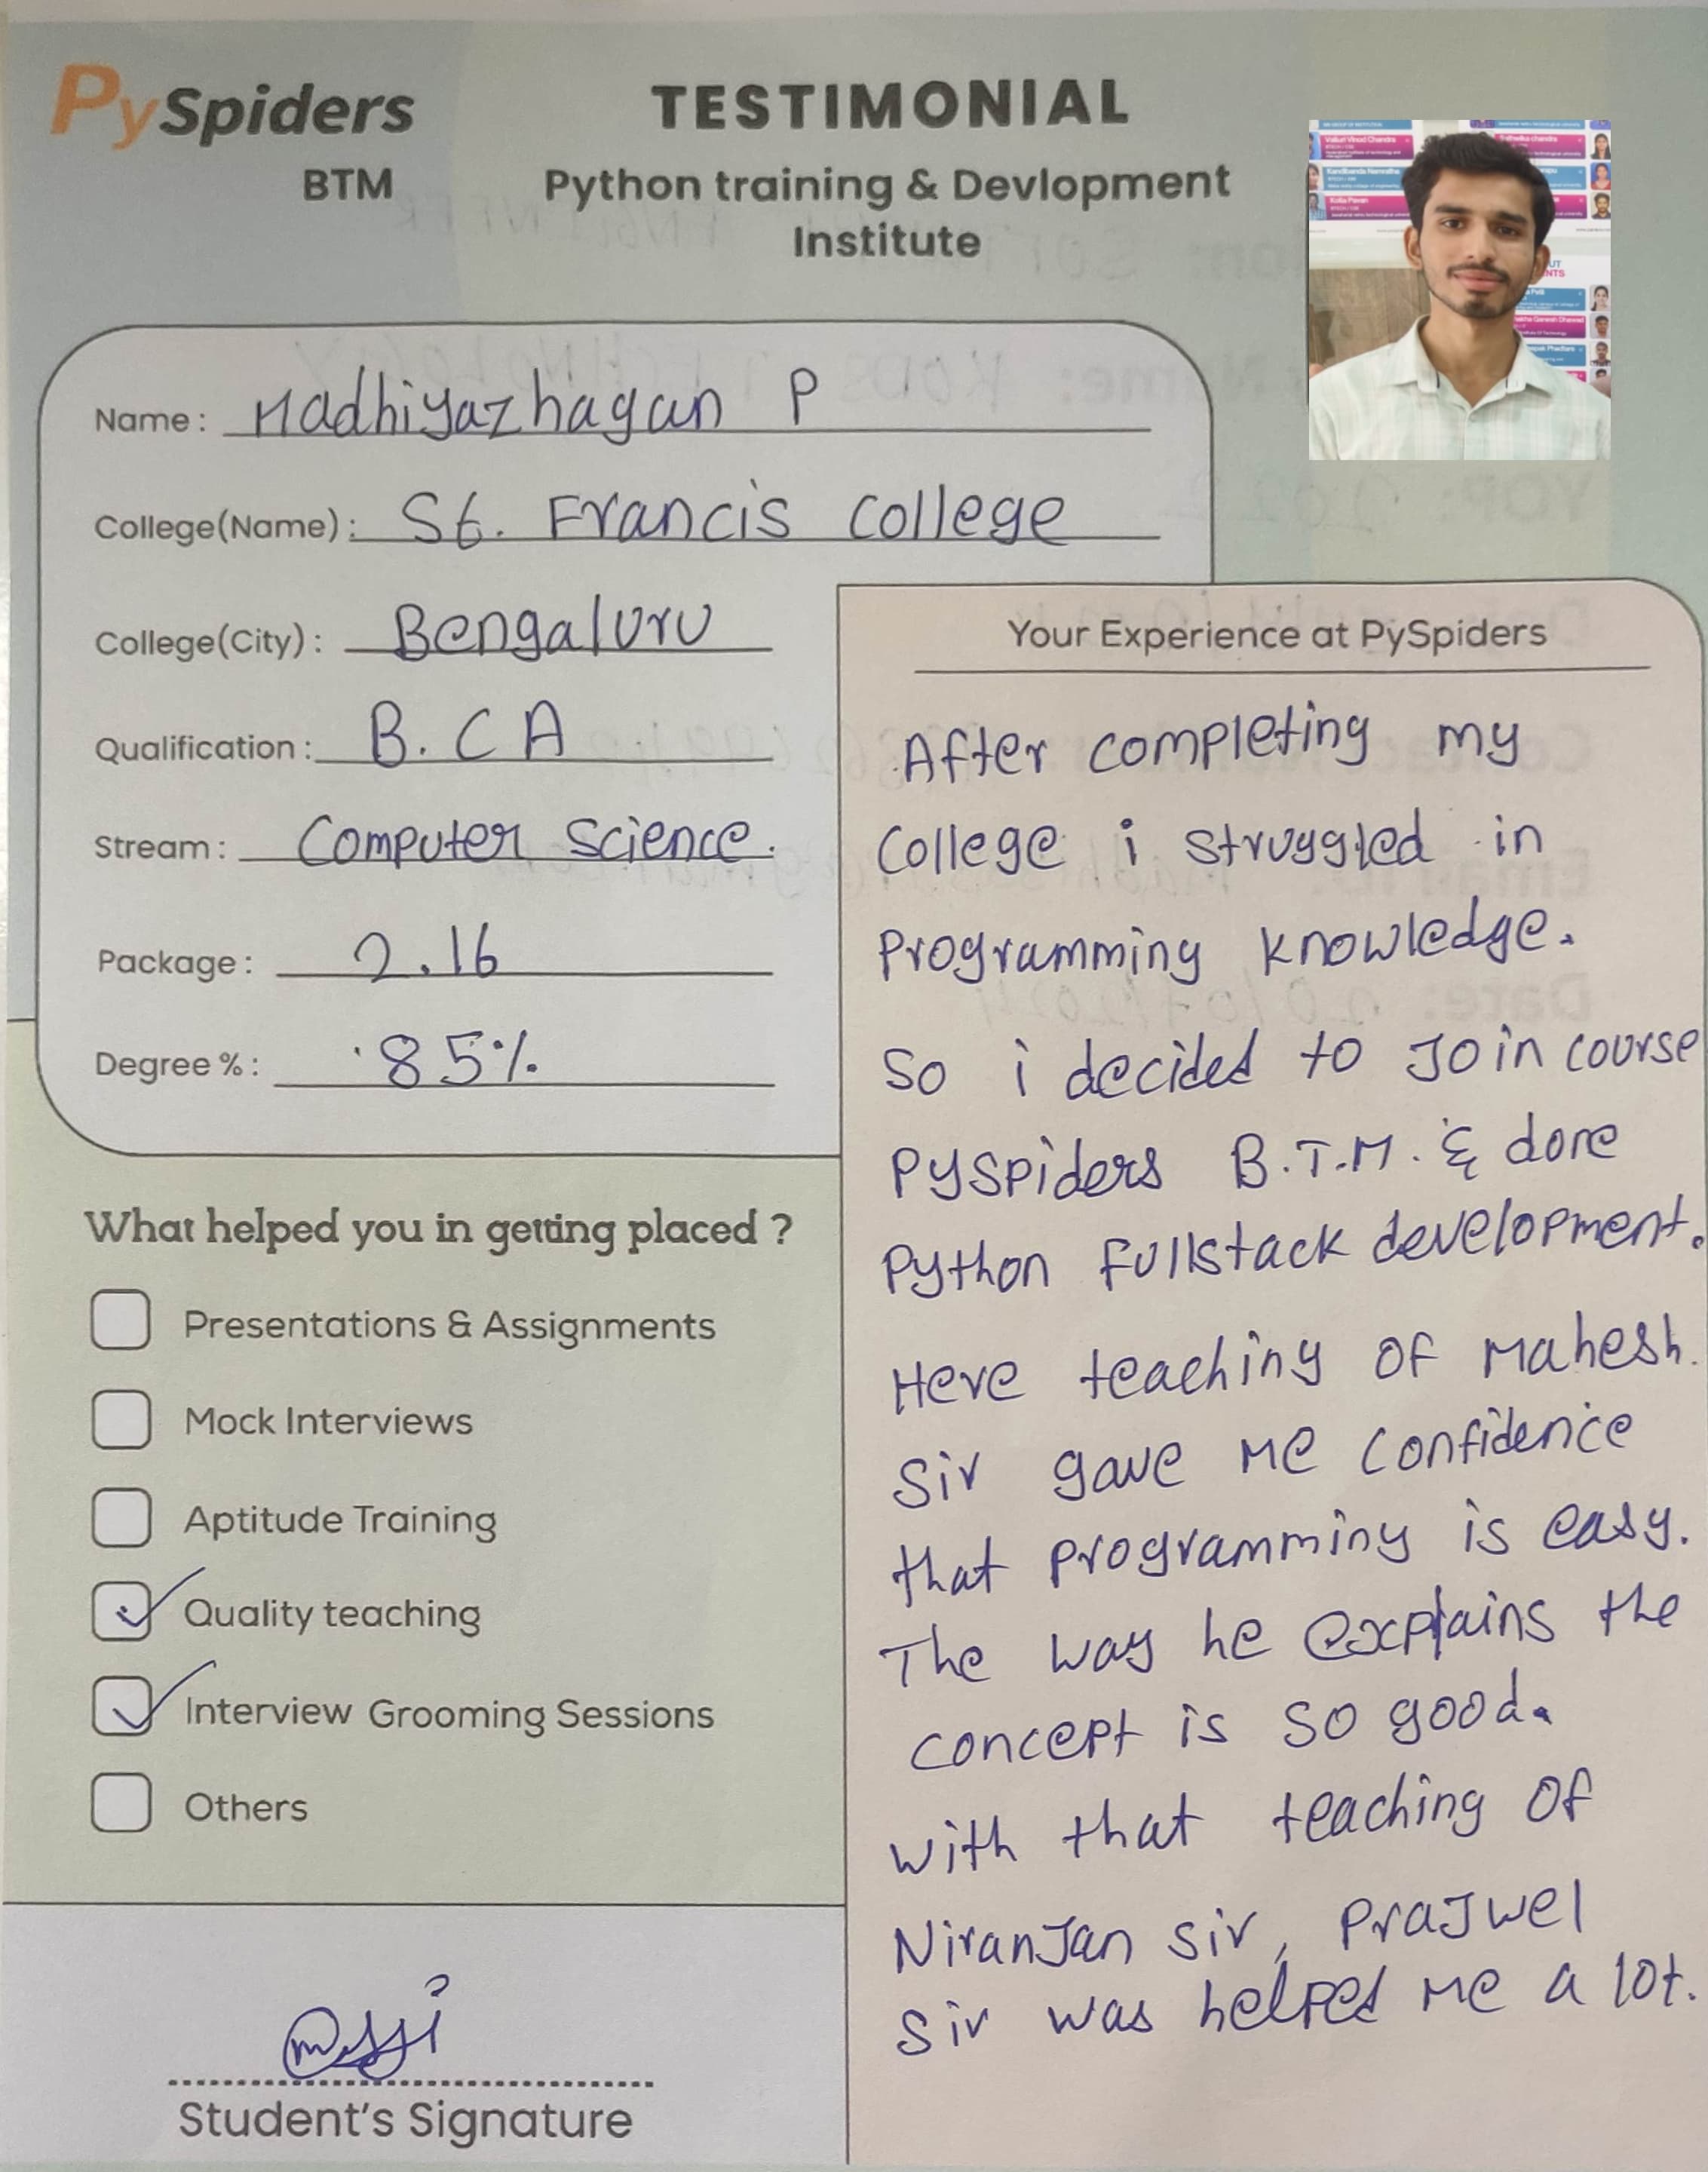 PySpiders
BTM
TESTIMONIAL
Python training & Devlopment
Institute
Name : Madhiyazhagan P
College(Name) : St. Francis College
College(City) : Bengaluru
Qualification : B. C A
Stream : Computer Science.
Package : 2.16
Degree % : 85%
What helped you in getting placed ?
Presentations & Assignments
Mock Interviews
Aptitude Training
Quality teaching
Interview Grooming Sessions
Others
Student's Signature
Your Experience at PySpiders
After completing my
College i struggled in
Programming knowledge.
So i decided to Join course
PySpiders B.T.M. & done
Python Fullstack development.
Here teaching of Mahesh.
Sir gave me confidence
that programming is easy.
The way he explains the
concept is so good.
with that teaching of
Niranjan sir, Prajwel
Sir was helped me a lot.